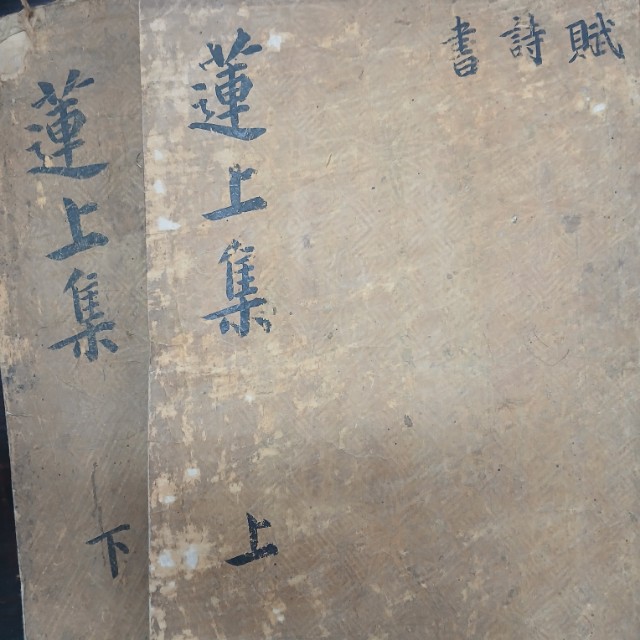 賦
詩
書
蓮上集
上
蓮上集
下